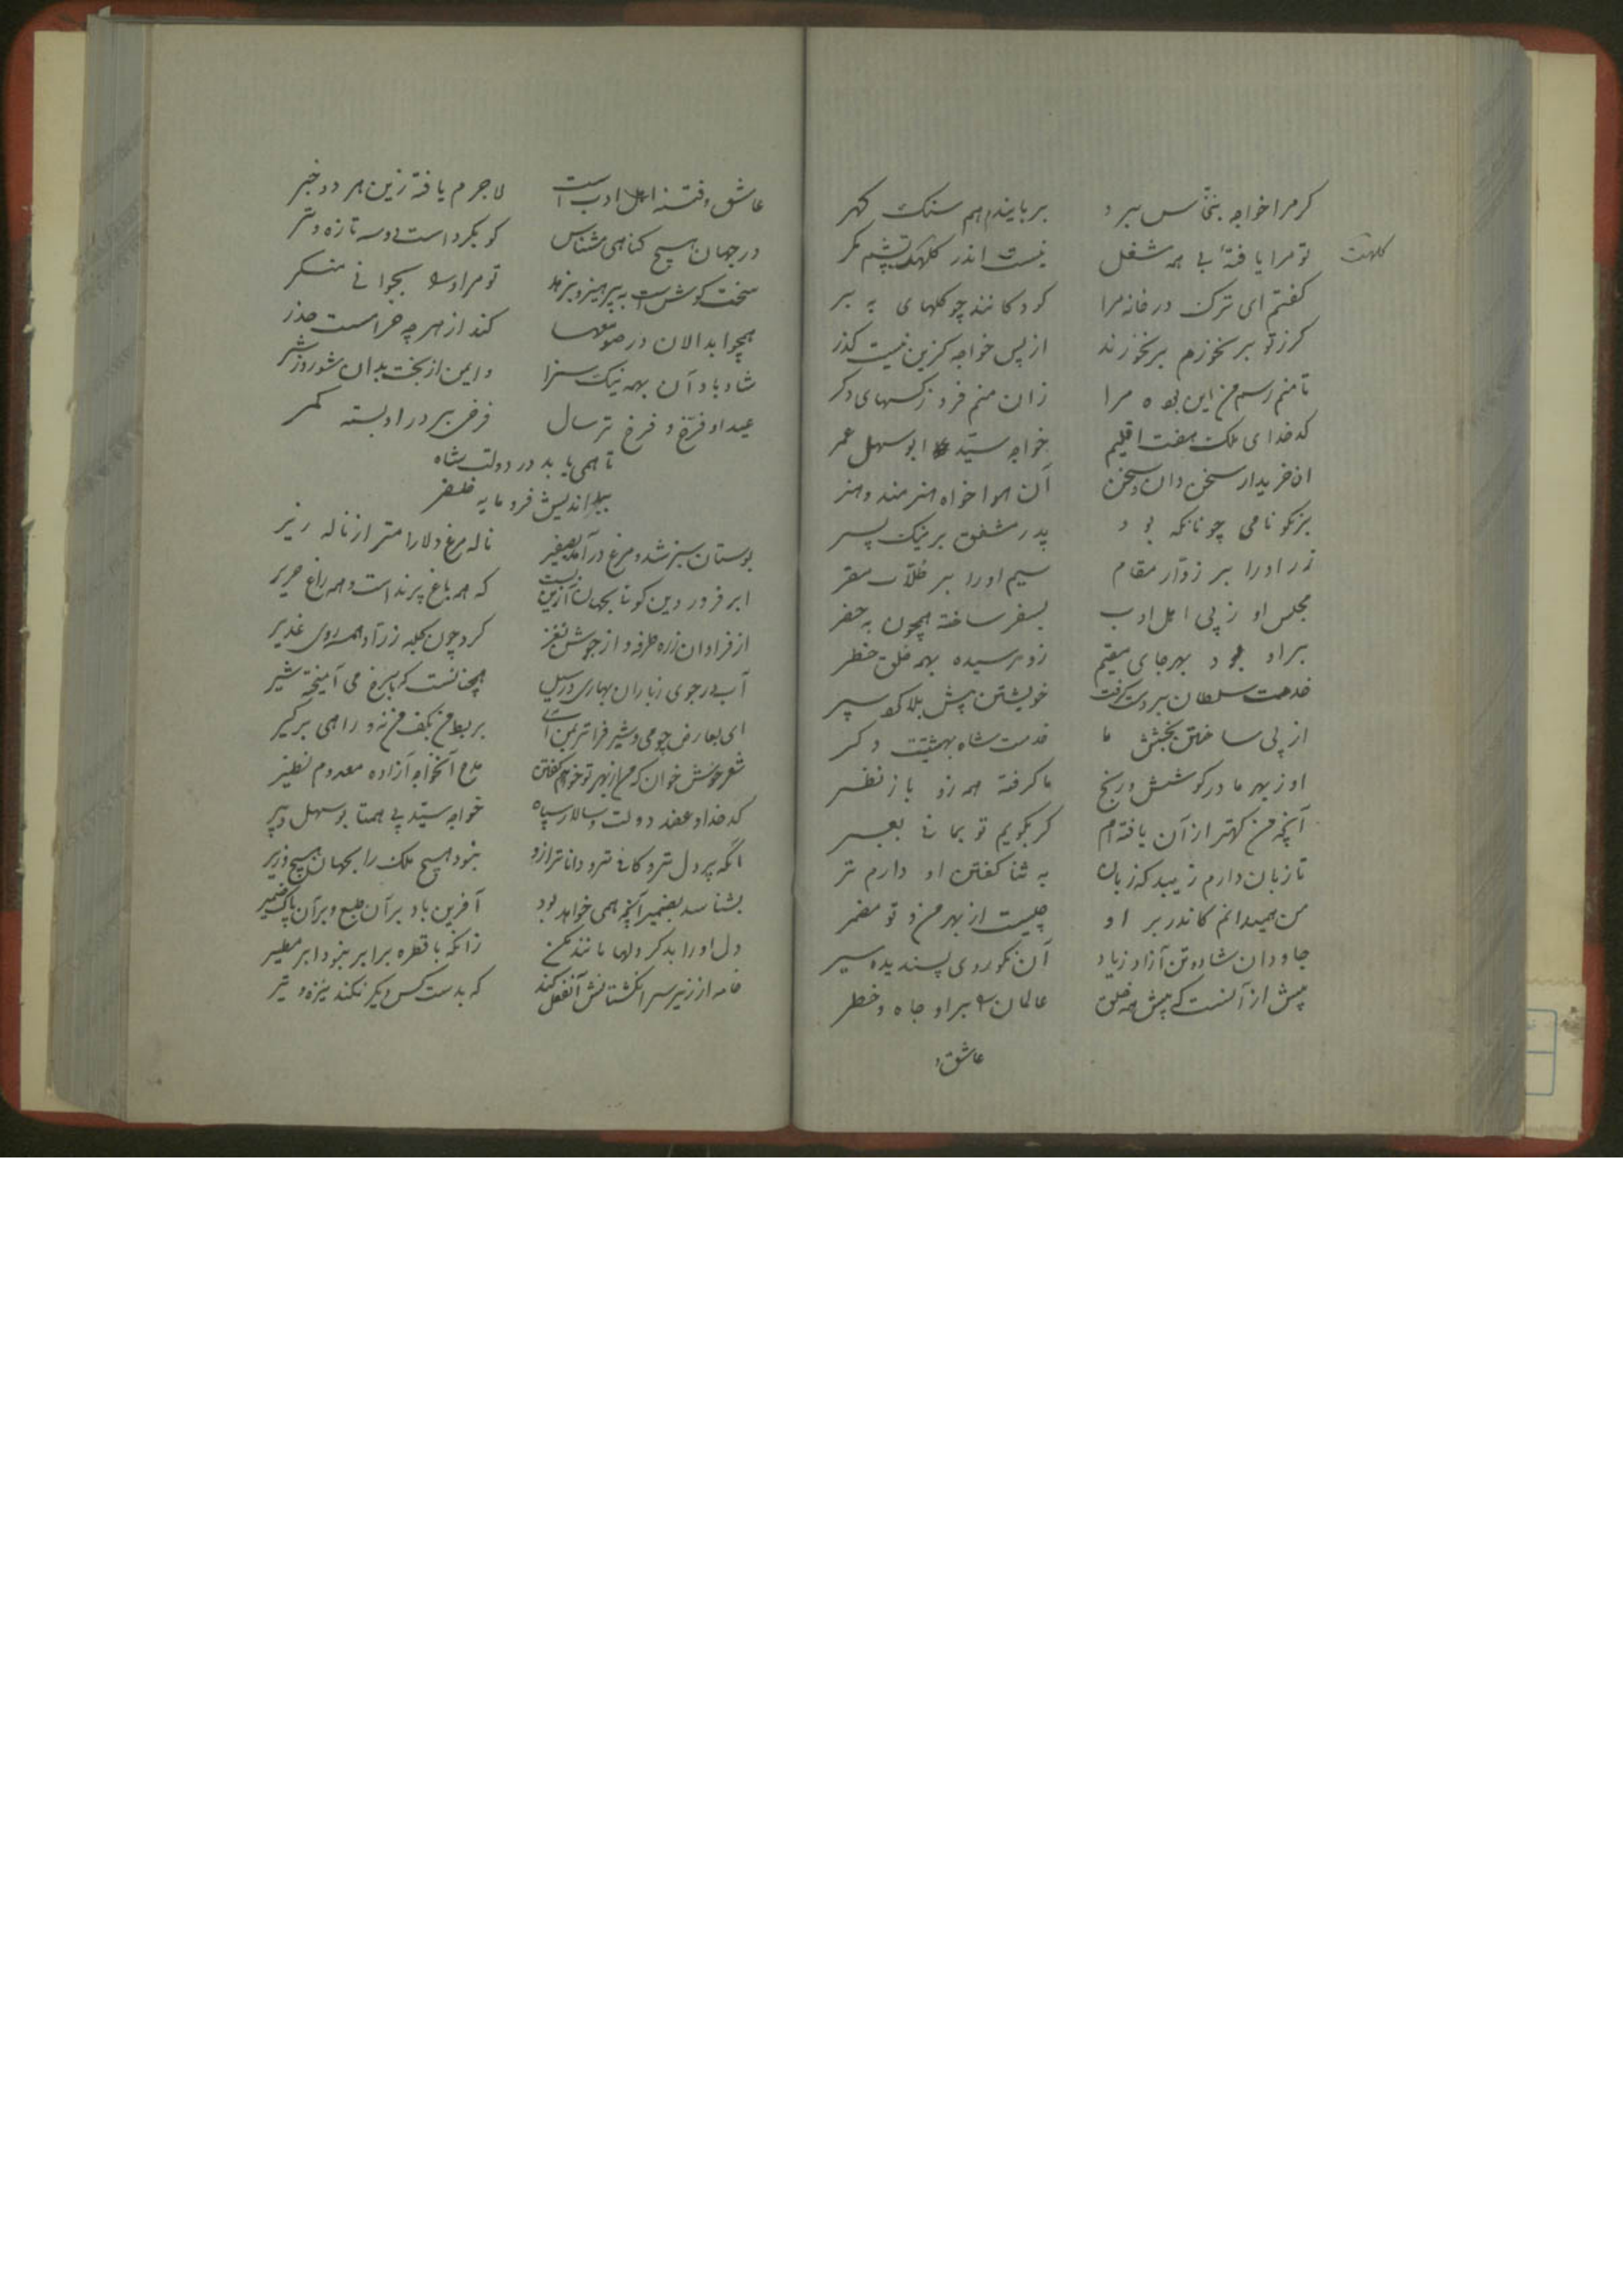 کرمرا خواجه بنخّاس ببرد بربایندم هم سنک کهر
تو مرا یافتهٔ بی همه شغل نیست اندر کلهکت پشم مکر
کلهت
کفتم ای ترک در خانه مرا کودکانند چو کلهای به بر
کر تو برنخوزم برنخورند از پس خواجه کزین نیست کذر
تا منم رسم من این بوده مرا زان منم فرد ز کسهای دکر
کدخدای ملک هفت اقلیم خواجه سیّد ابوسهل عمر
ان خریدار سخن دان و سخن آن هوا خواه هنرمند و هنر
بنکونامی چونانکه بود پدر مشفق بر نیک پسر
زر اورا بر زوّار مقام سیم اورا بر طلّاب مقر
مجلس او ز پی اهل ادب بسفر ساخته همچون به حضر
بر او بود بهر جای مقیم زو رسیده بهمه خلق خطر
خدمت سلطان بر دست کرفت خویشتن پیش بلا کرد سپر
از پی ساختن بخشش ما خدمت شاه بهشتیت دکر
او ز بهر ما در کوشش و رنج ما کرفته همه زو باز نظر
آنچه من کهتر از آن یافته‌ام کر بکویم تو بمانی بعبر
تا زبان دارم زیبد که زبان به ثنا کفتن او دارم تر
من همیدانم کاندر بر او چیست از بهر من و تو مضمر
جاودان شاد و تن آزاد زیاد آن نکوروی پسندیده سیر
پیش از آنست که پیش همه خلق عالمان بر او جاه و خطر
عاشق و
عاشق و فتنه اهل ادب است لاجرم یافته زین هر دو خبر
در جهان هیچ کناهی مشناس کو بکرد است تازه و تر
سخت کوش است به پرهیز و بزهد تو مراورا بجوانی منکر
همچو ابدالان در صومعها کند از هر چه حرامست حذر
شاد باد آن بهمه نیک سزا و ایمن از بخت بدان شور و ز شر
عید او فرّخ و فرخ تر سال فرخی بر در او بسته کمر
تا همی یابد در دولت شاه
ببد اندیش فرومایه ظفر
بوستان سبز شد و مرغ در آمد بصفیر ناله مرغ دلارا متر از ناله زیر
ابر فروردین کوتا بجهان آزین بست که همه باغ پرند است و همه راغ حریر
کرد چون کلبه زرّاد همه روی غدیر
همچنانست که با سرخ می آمیخته شیر
ای بعارض چو می و شیر فراتر بمن آی بربط من بکف من نه و راهی برکیر
شعر خوش خوان که من از بهر تو خواهم کفتن مدح آنخواجه آزاده معدوم نظیر
کدخدا و عضد دولت و سالار سپاه خواجه سیّد بی همتا بوسهل دبیر
آنکه پر دل تر و کافی تر و داناتر ازو نبود هیچ ملک را بجهان هیچ وزیر
بشناسد بضمیر آنچه همی خواهد بود آفرین باد بر آن طبع و بر آن پاک ضمیر
دل اورا بدکر دلها مانند مکن زانکه با قطره برابر نبود ابر مطیر
خامه از زیر سر انکشتانش آنفعل کند که بدست کس دیکر نکند نیزه و تیر